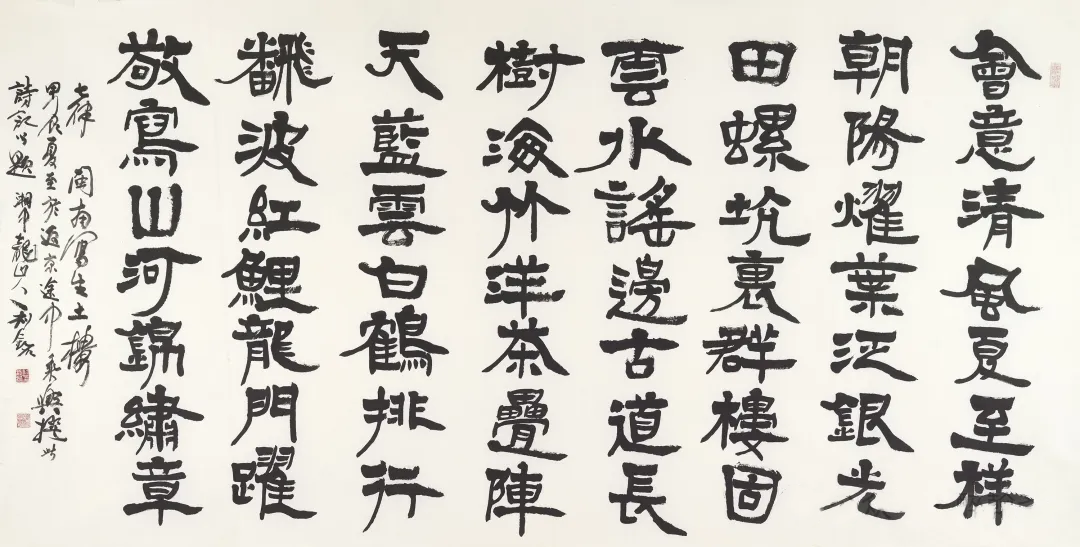 會意清風夏至祥
朝陽燿葉泛銀光
田螺坑裏群樓固
雲水謠邊古道長
樹海竹洋茶疊陣
天藍雲白鶴排行
飜波紅鯉龍門躍
敬寫山河錦繡章
七律 閩南寫生土樓
甲辰夏至於返京途中乘興撰此
詩記以題 龍山人